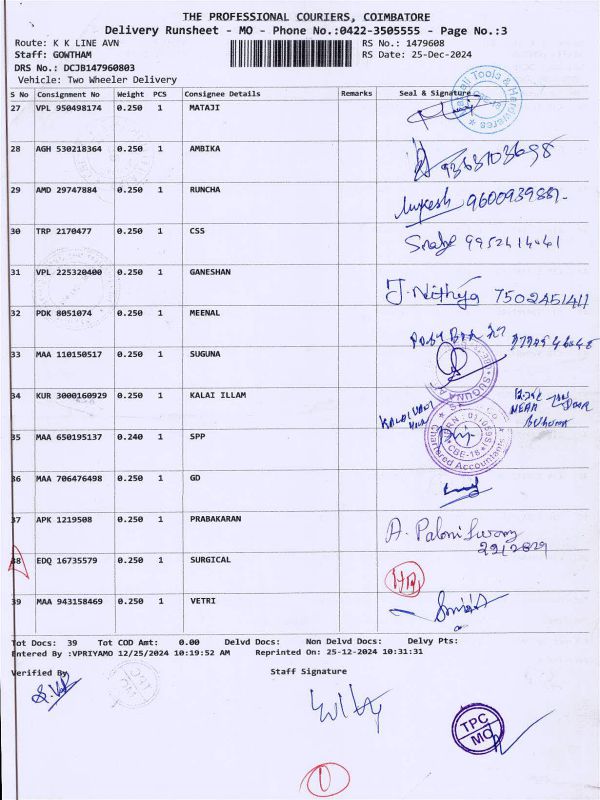 THE PROFESSIONAL COURIERS, COIMBATORE
Delivery Runsheet - MO - Phone No.:0422-3505555 - Page No.:3
Route: K K LINE AVN
RS No.: 1479608
Staff: GOWTHAM
RS Date: 25-Dec-2024
DRS No.: DCJB147960803
Vehicle: Two Wheeler Delivery
S No Consignment No Weight PCS Consignee Details Remarks Seal & Signature
27 VPL 950498174 0.250 1 MATAJI
28 AGH 530218364 0.250 1 AMBIKA 9363703698
29 AMD 29747884 0.250 1 RUNCHA Mukesh
30 TRP 2170477 0.250 1 CSS
31 VPL 225320400 0.250 1 GANESHAN J. Nithya 7502451411
32 PDK 8051074 0.250 1 MEENAL
33 MAA 110150517 0.250 1 SUGUNA
34 KUR 3000160929 0.250 1 KALAI ILLAM
35 MAA 650195137 0.240 1 SPP
Chartered Accountants
CBE-18
36 MAA 706476498 0.250 1 GD
37 APK 1219508 0.250 1 PRABAKARAN A. Palani Swamy
38 EDQ 16735579 0.250 1 SURGICAL
39 MAA 943158469 0.250 1 VETRI
Tot Docs: 39 Tot COD Amt: 0.00 Delvd Docs: Non Delvd Docs: Delvy Pts:
Entered By :VPRIYAMO 12/25/2024 10:19:52 AM Reprinted On: 25-12-2024 10:31:31
Verified By
Staff Signature
TPC
MO